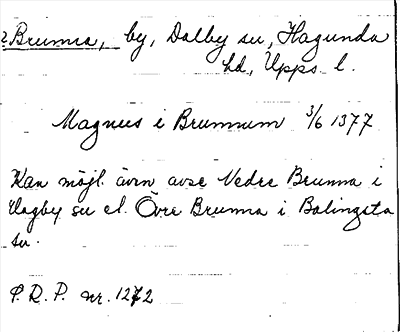 ? Brunna, by, Dalby sn, Hagunda
hd, Upps. l.
Magnus i Brumnum 3/6 1377
Kan möjl. även avse Nedre Brunna i
Vagby sn el. Övre Brunna i Balingsta
sn.
P. R. P. nr. 1272